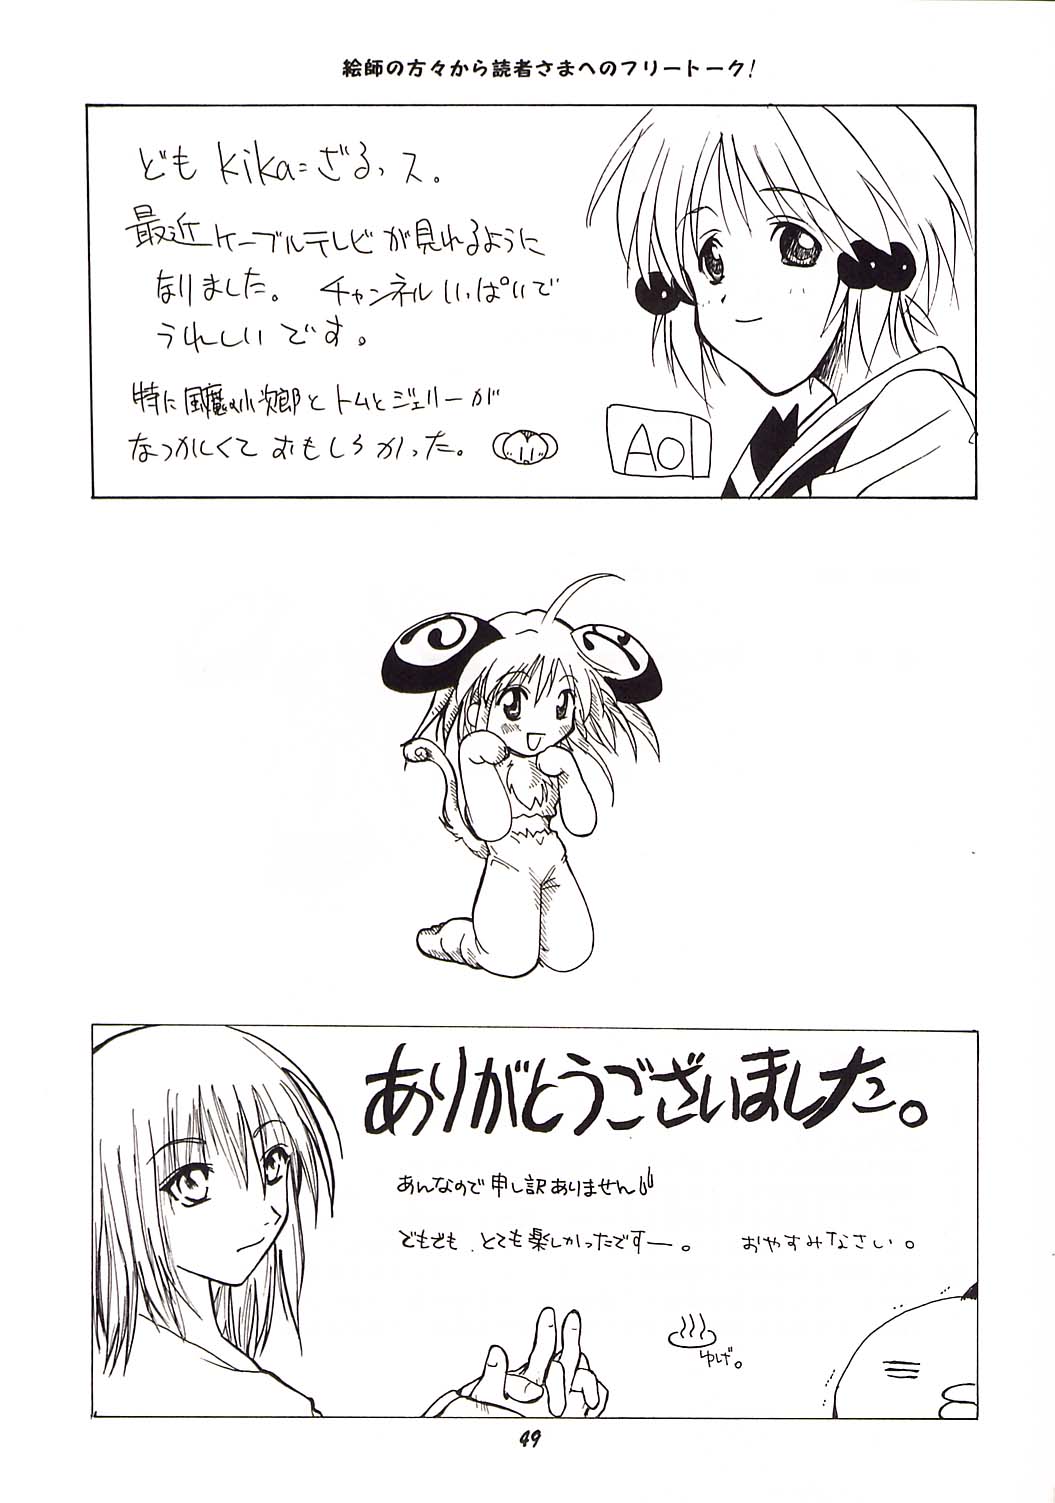 絵師の方々から読者さまへのフリートーク！
ども kika=ざるっス。
最近ケーブルテレビが見れるように
なりました。 チャンネルいっぱいで
うれしいです。
特に風魔の小次郎とトムとジェリーが
なつかしくておもしろかった。
AOI
ありがとうございました。
あんなので申し訳ありません
でもでも、とても楽しかったですー。 おやすみなさい。
ゆげ。
49